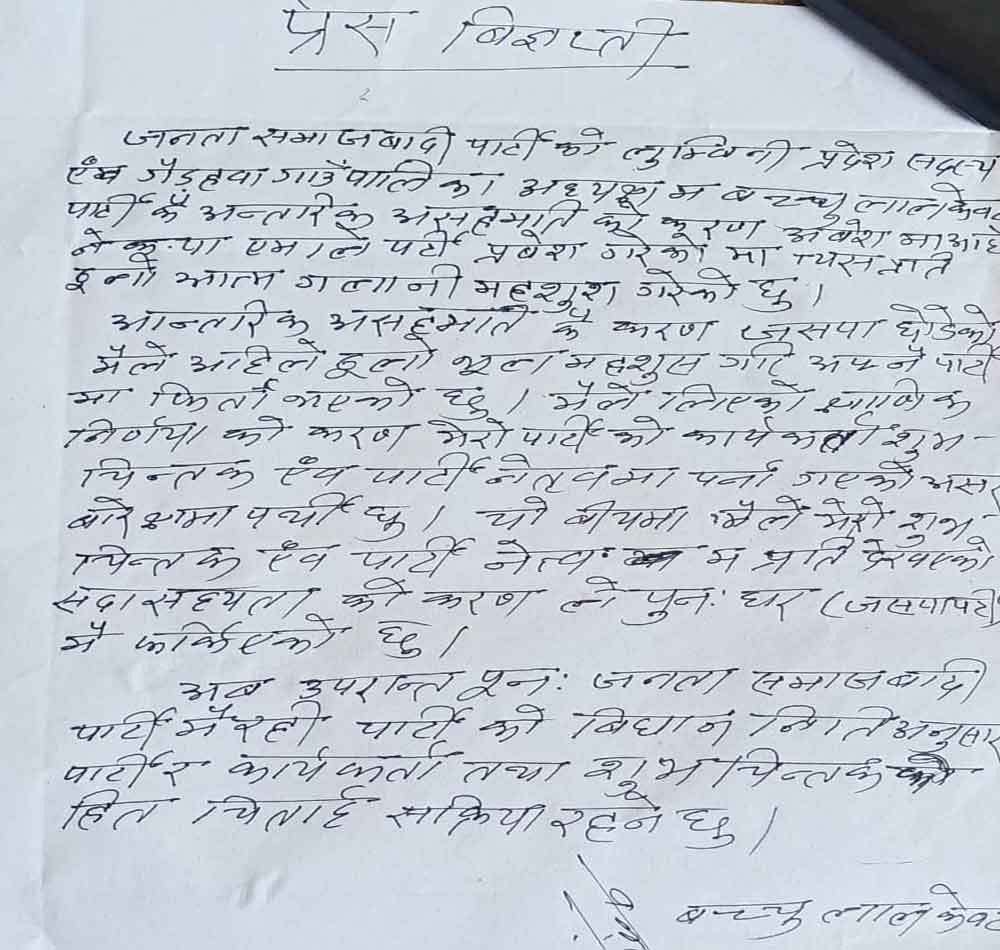 प्रेस बिज्ञप्ती
जनता समाजबादी पार्टी को लुम्बिनी प्रदेश सदस्य
एंब गैडहवा गाउँपालिका अध्यक्ष म बच्चु लाल केवट
पार्टी कै अन्तारिक असहमति को कारण आबेश मा आई
ने क.पा एमाले पर्टी प्रबेश गरेको मा त्यस प्रति
ठूलो आत्म गलानी महशुश गरेको छु।
आन्तरिक असहमति कै कारण जसपा छोडेको
मैले अहिले ठूलो भूल महशुस गरि अफ्नै पार्टी
मा फिर्ता भएको छु। मैले लिएको क्षाणिक
निर्णय को करण मेरो पार्टी को कार्यकर्ता शुभ-
चिन्तक एंव पार्टी नेतृवमा पर्न गएको असर
बारे क्षमा पर्थी छु। यो बीचमा मैले मेरो शुभ
चिन्तक एंव पार्टी नेतृव म प्रति देखएको
सदासहयता को करण ले पुन: घर (जसपापर्टी)
मै फर्किएको छु।
अब उपरान्त पुन: जनता समाजबादी
पार्टी मै रही पार्टी को बिधान निति अनुसार
पार्टी र कार्यकर्ता तथा शुभ चिन्तक को
हित चिताई सक्रिया रहने छु।
बच्चु लाल केवट